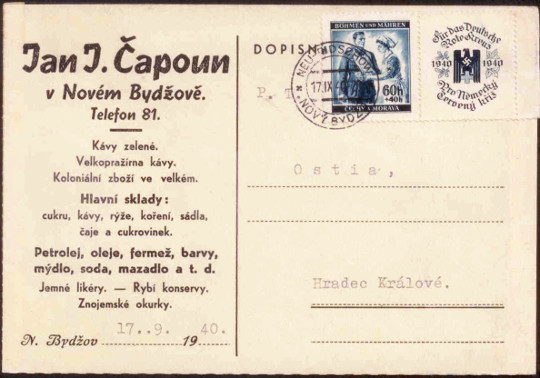 Jan J. Čapoun
v Novém Bydžově.
Telefon 81.
Kávy zelené.
Velkopražírna kávy.
Koloniální zboží ve velkém.
Hlavní sklady:
cukru, kávy, rýže, koření, sádla,
čaje a cukrovinek.
Petrolej, oleje, fermež, barvy,
mýdlo, soda, mazadlo a t. d.
Jemné likéry. — Rybí konservy.
Znojemské okurky.
N. Bydžov 17..9. 1940.
DOPISN
P. T.
BÖHMEN UND MÄHREN
60h
+40h
ČECHY A MORAVA
17.IX
NOVÝ BYDŽ
Für das Deutsche
Rote Kreuz
1940 1940
Pro Německý
červený kříž
Ostia,
Hradec Králové.